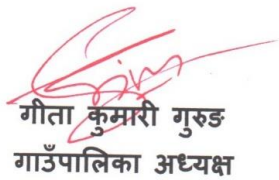 गीता कुमारी गुरुङ
गाउँपालिका अध्यक्ष